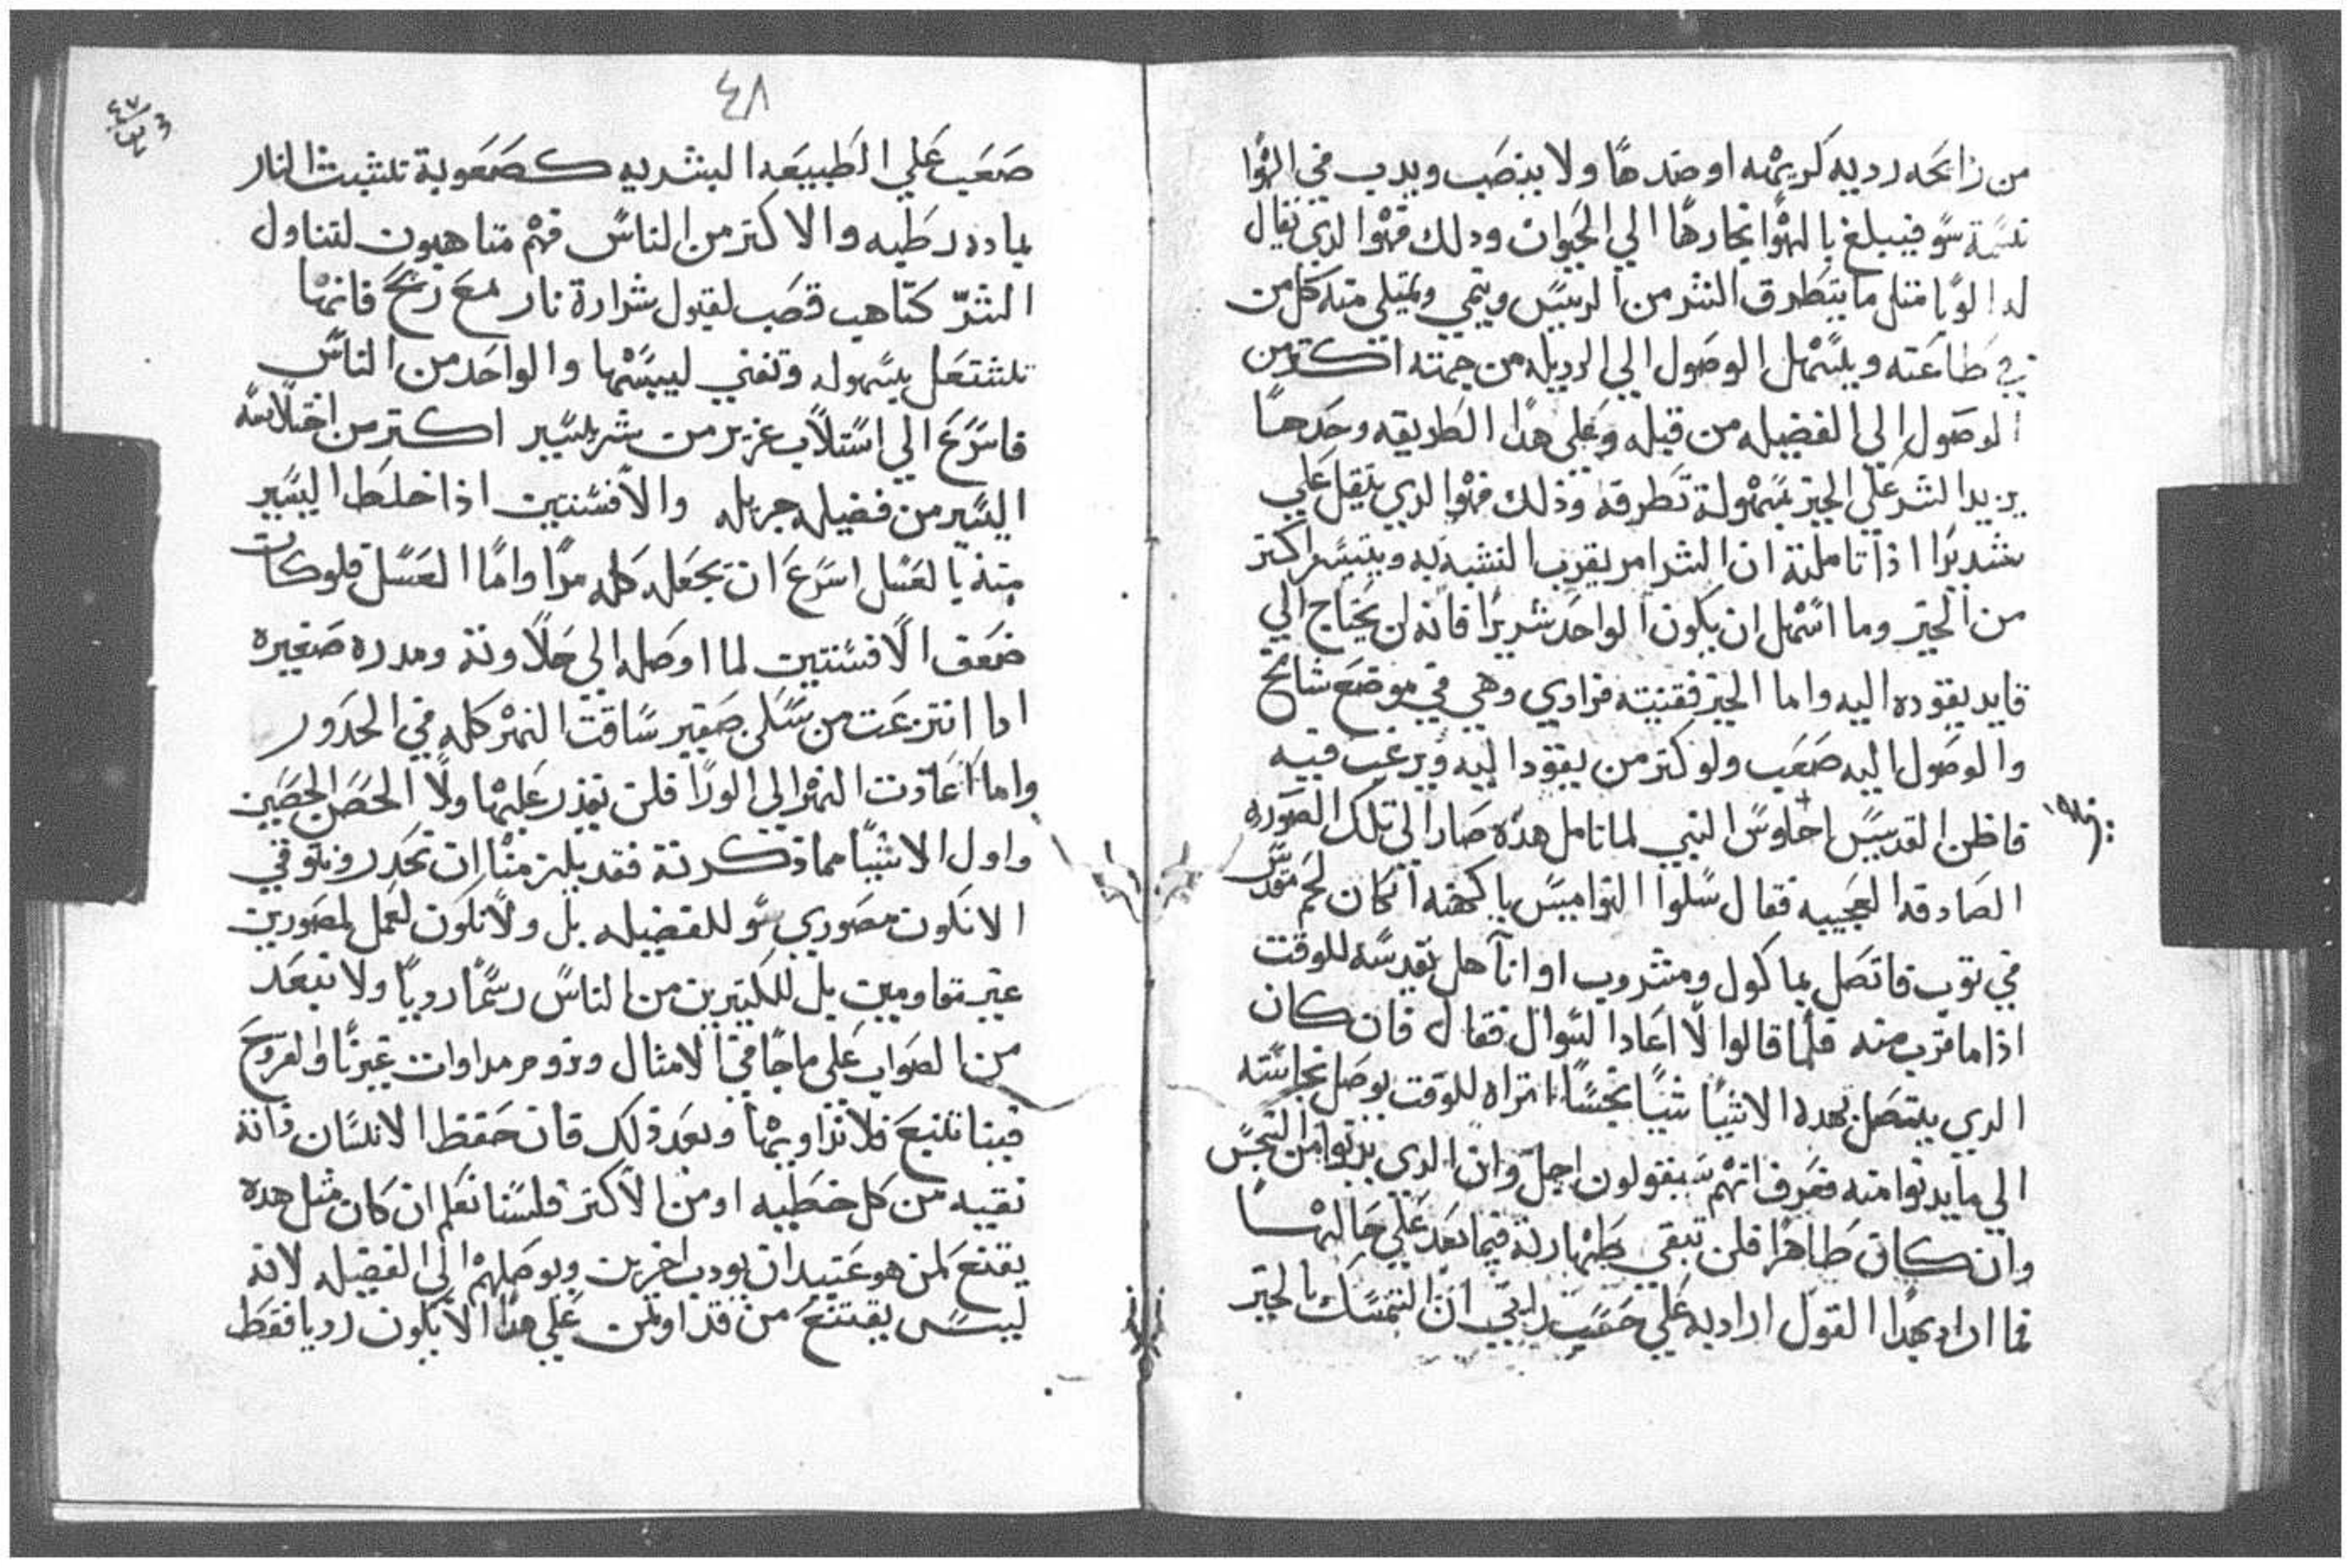 من رايحه رديه كريهه او ضدها ولا ينصب ويدب في الهوا
نسمة سو فيبلغ بالهوا بخارها الي الحيوان ودلك فهوا الدي يقال
له الوبا متل ما يتطرق الشر من الرييس وينمي ويمتلي منه كل من
في طاعته ويسهل الوصول الي الرديله من جهته اكتر من
الوصول الي الفضيله من قبله وعلي هدا الطريقه وحدها
يزيد الشر علي الخير بسهولة تطرقه وذلك فهوا الدي يثقل علي
شديدا اذا تاملته ان الشر امر يقرب التشبه به ويتيسر اكتر
من الخير وما اسهل ان يكون الواحد شريرا فانه لن يحتاج الي
قايد يقوده اليه واما الخير فقنيته فراوي وهي في موضع شامخ
والوصول اليه صعب ولو كتر من يقود اليه ويرغب فيه
فاظن القديس احاوس النبي لما تامل هده صار الي تلك الصوره
الصادقه العجيبه فقال سلوا النواميس يا كهنه ان كان لحم مقدس
في توب فاتصل بماكول ومشروب او انا هل يقدسه للوقت
اذا ما قرب منه فلما قالوا لا اعاد السوال فقال فان كان
الدي يتصل بهده الاشيا شيا نجسا اتراه للوقت يوصل نجاسته
الي ما يدنوا منه فعرف انهم سيقولون اجل وان الدي يدنوا من النجس
وان كان طاهرا فلن تبقي طهارته فيما بعد علي حالهــا
فما اراد بهدا القول اراد به علي حسب رايي ان التمسك بالخير
٤٨
صعب علي الطبيعه البشريه كصعوبة تشبت النار
بماده رطبه والاكتر من الناس فهم متاهبون لتناول
الشر كتاهب قصب لقبول شرارة نار مع ريح فانها
تشتعل بسهوله وتفني ليبسها والواحد من الناس
فاسرع الي استلاب غزير من شر يسير اكتر من اختلاسه
اليسير من فضيله جزيله والافسنتين اذا خلط اليسير
منه بالعسل اسرع ان يجعله كله مرا واما العسل فلو كان
ضعف الافسنتين لما اوصله الي حلاوته ومدره صغيره
ادا انتزعت من سكر صغير ساقت النهر كله في الحدور
واما اعادت النهر الي الورا فلن تقدر عليها ولا الحصن الحصين
واول الاشيا مما ذكرته فقد يلزمنا ان نحدر ونتوقي
الا نكون مصوري سو للفضيله بل ولا نكون لعمل لمصورين
غير مقاومين بل للكتيرين من الناس رسما رديا ولا نبعد
من الصواب علي ما جا في الامثال ونروم مداوات غيرنا والقروح
فينا تنبع فلا نداويها وبعد ذلك فان حفظ الانسان ذاته
نقيه من كل خطيه او من الاكتر فلسنا نعلم ان كان مثل هده
يقنع لمن هو عتيد ان يودب اخرين ويوصلهم الي الفضيله لانه
ليس يقتنع من قد اوتمن علي هدا الا يكون رديا فقط